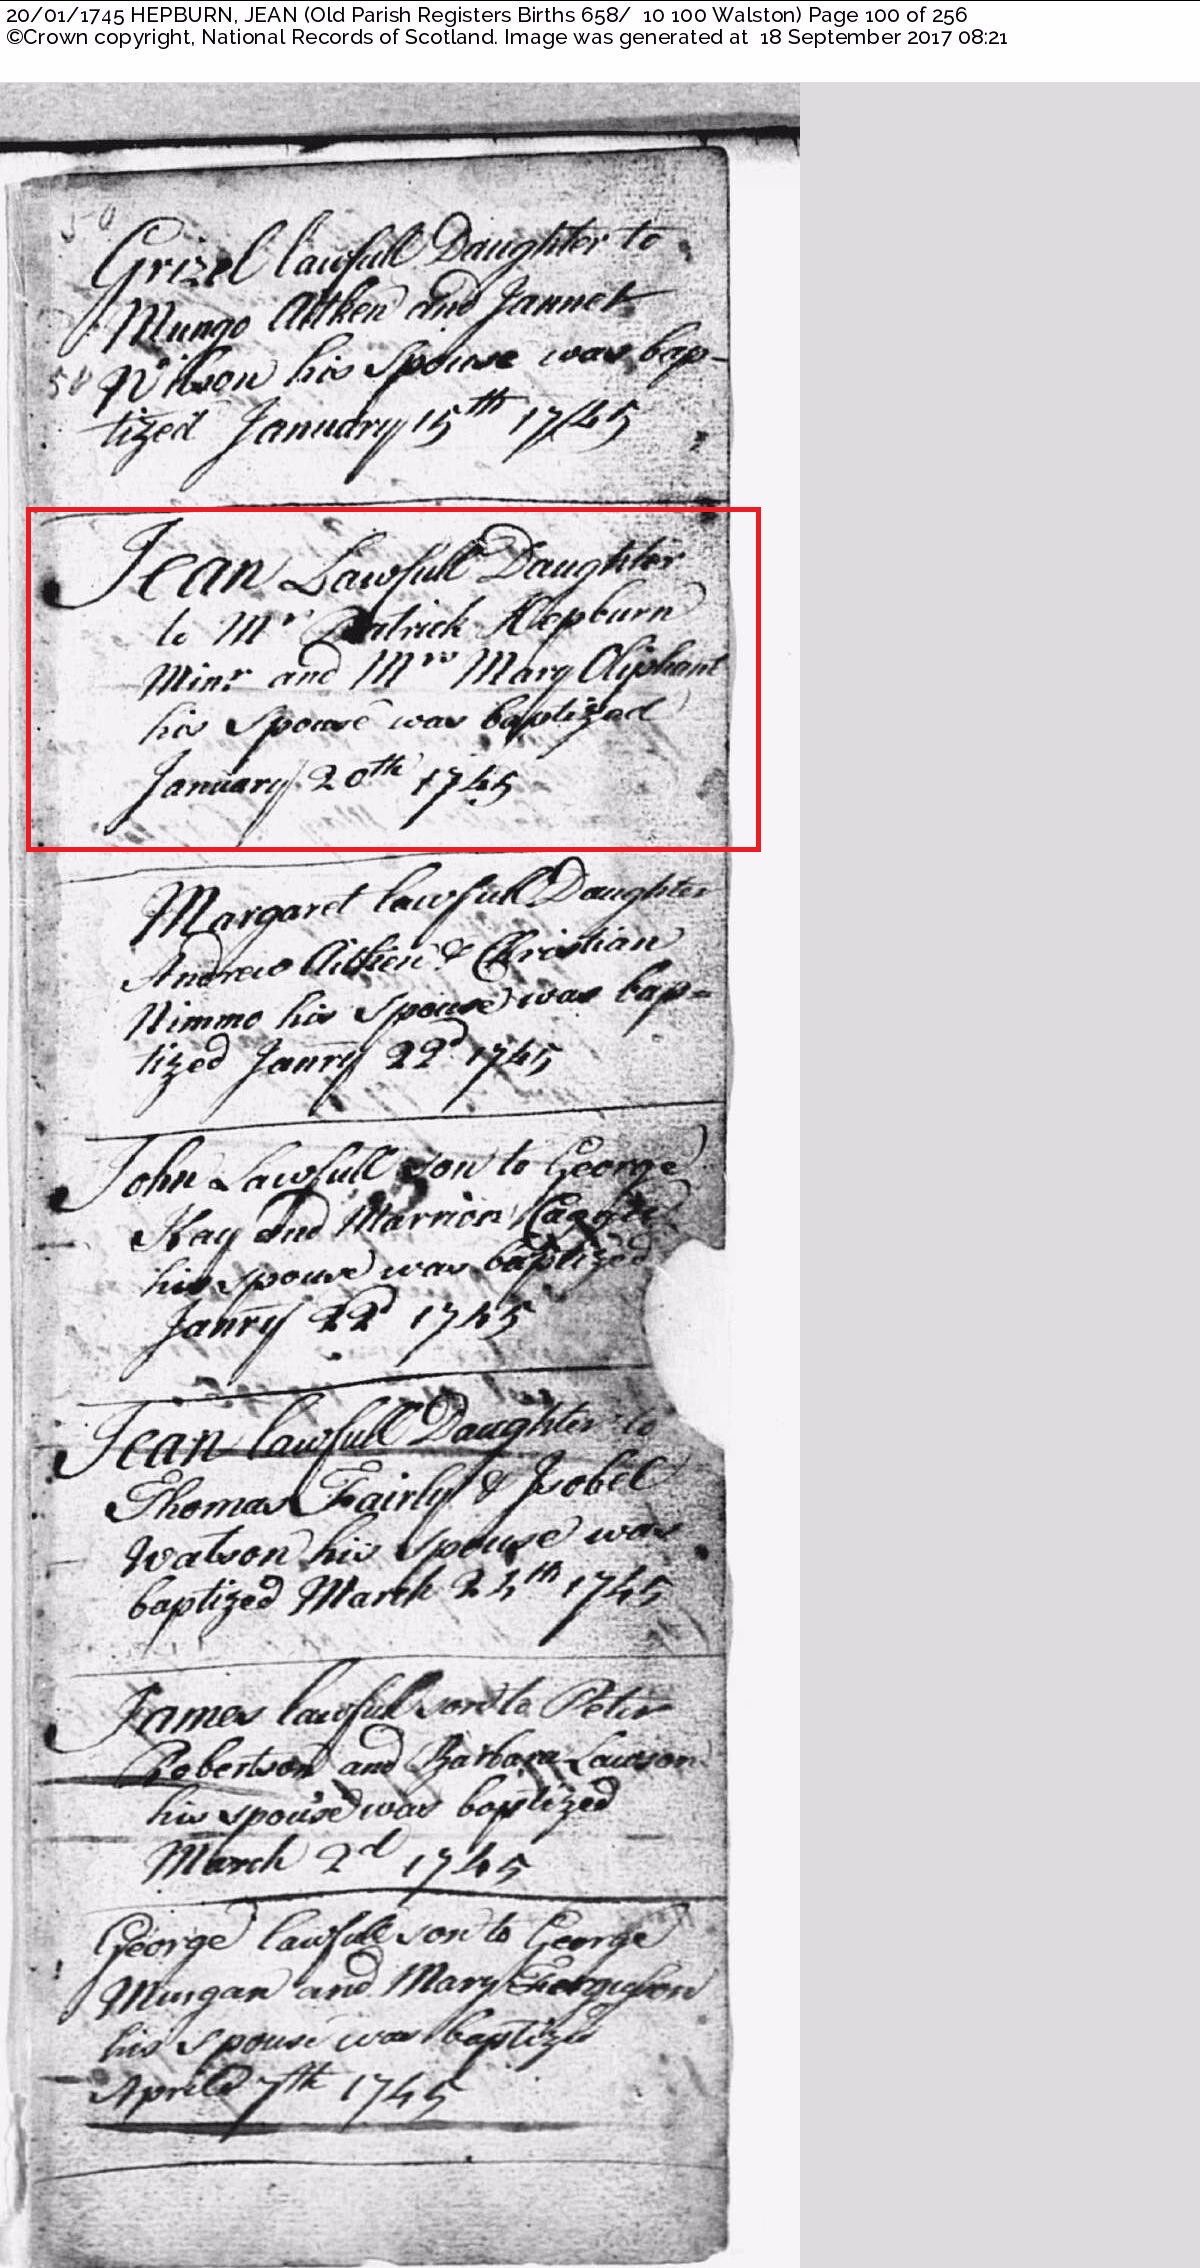 20/01/1745 HEPBURN, JEAN (Old Parish Registers Births 658/ 10 100 Walston) Page 100 of 256
©Crown copyright, National Records of Scotland. Image was generated at 18 September 2017 08:21
Grizel lawfull Daughter to
Mungo Aitken and Jannet
Wilson his Spouse was bap-
tized January 15th 1745
Jean Lawfull Daughter
to Mr Patrick Hepburn
Minr. and Mrs Mary Oliphant
his Spouse was baptized
January 20th 1745
Margaret lawfull Daughter
Andrew Aitken & Christian
Nimmo his Spouse was bap=
tized Janry 22d 1745
John Lawfull son to George
Kay and Marrion
his spouse was baptized
Janry 22d 1745
Jean lawfull Daughter to
Thomas Fairly & Isobel
Watson his spouse was
baptized March 24th 1745
James lawfull son to Peter
Robertson and Barbara Lawson
his spouse was baptized
March 2d 1745
George lawfull son to George
Murgan and Mary
his Spouse was
Aprile 7th 1745